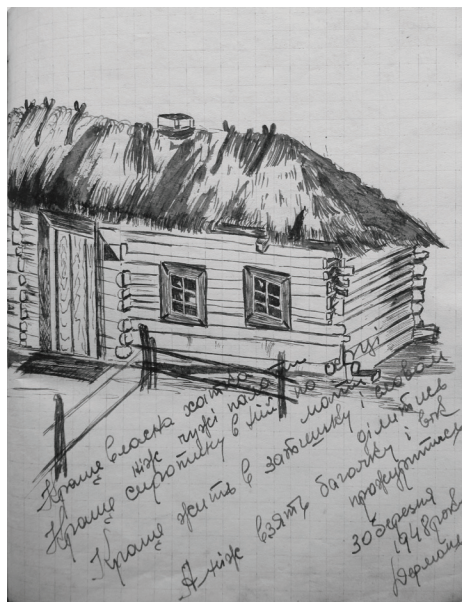 Краще власна хатка
ніж чужі палаци
Краще сиротинку в
Краще жить в затишку і
ділитись
А ніж взять багачку і вік
прожуритись
30 березня
1948 року
Дермань